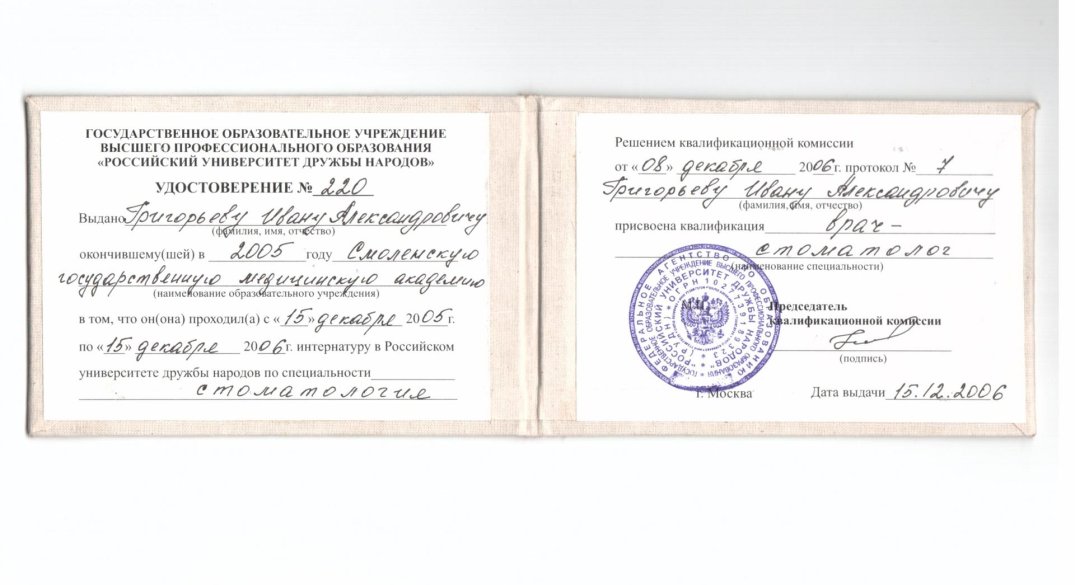 ГОСУДАРСТВЕННОЕ ОБРАЗОВАТЕЛЬНОЕ УЧРЕЖДЕНИЕ
ВЫСШЕГО ПРОФЕССИОНАЛЬНОГО ОБРАЗОВАНИЯ
«РОССИЙСКИЙ УНИВЕРСИТЕТ ДРУЖБЫ НАРОДОВ»
УДОСТОВЕРЕНИЕ № 220
Выдано Григорьеву Ивану Александровичу
(фамилия, имя, отчество)
окончившему(шей) в 2005 году Смоленскую
государственную медицинскую академию
(наименование образовательного учреждения)
в том, что он(она) проходил(а) с «15» декабря 2005г.
по «15» декабря 2006г. интернатуру в Российском
университете дружбы народов по специальности
стоматология
Решением квалификационной комиссии
от «08» декабря 2006г. протокол № 7
Григорьеву Ивану Александровичу
(фамилия, имя, отчество)
присвоена квалификация врач –
стоматолог
(наименование специальности)
ФЕДЕРАЛЬНОЕ АГЕНТСТВО ПО ОБРАЗОВАНИЮ
ГОСУДАРСТВЕННОЕ ОБРАЗОВАТЕЛЬНОЕ УЧРЕЖДЕНИЕ ВЫСШЕГО ПРОФЕССИОНАЛЬНОГО ОБРАЗОВАНИЯ
"РОССИЙСКИЙ УНИВЕРСИТЕТ ДРУЖБЫ НАРОДОВ"
Председатель
Квалификационной комиссии
(подпись)
г. Москва Дата выдачи 15.12.2006